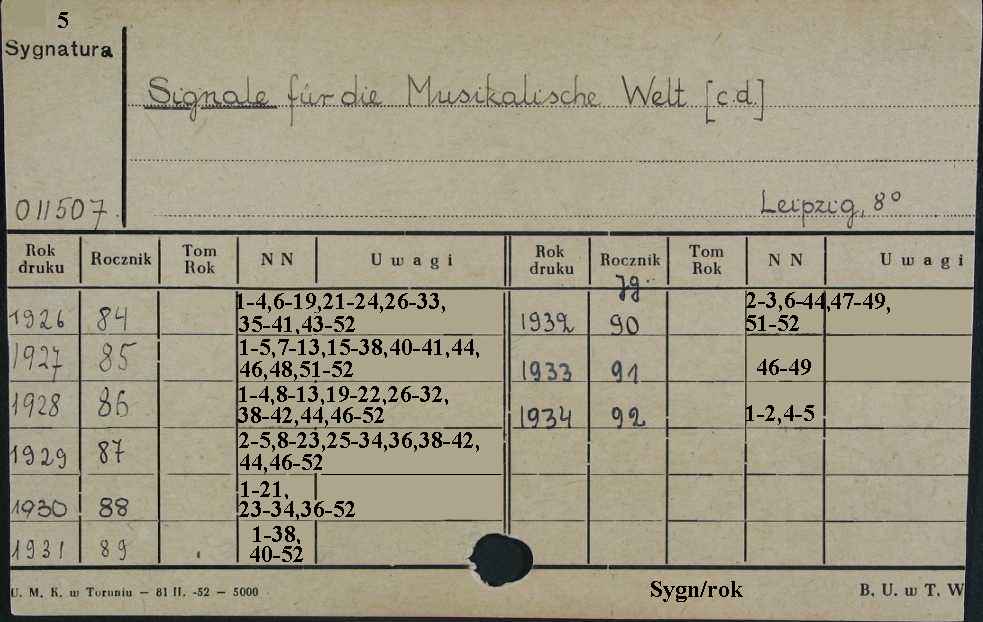 5
Sygnatura
Signale für die Musikalische Welt [c.d.]
011507
Leipzig, 8°
Rok druku Rocznik Tom Rok NN Uwagi Rok druku Rocznik Tom Rok NN Uwagi
Jg.
1926 84 1-4,6-19,21-24,26-33,
35-41,43-52
1927 85 1-5,7-13,15-38,40-41,44,
46,48,51-52
1928 86 1-4,8-13,19-22,26-32,
38-42,44,46-52
1929 87 2-5,8-23,25-34,36,38-42,
44,46-52
1930 88 1-21,
23-34,36-52
1931 89 1-38,
40-52
1932 90 2-3,6-44,47-49,
51-52
1933 91 46-49
1934 92 1-2,4-5
U. M. K. w Toruniu – 81 II. -52 – 5000
Sygn/rok
B. U. w T. W